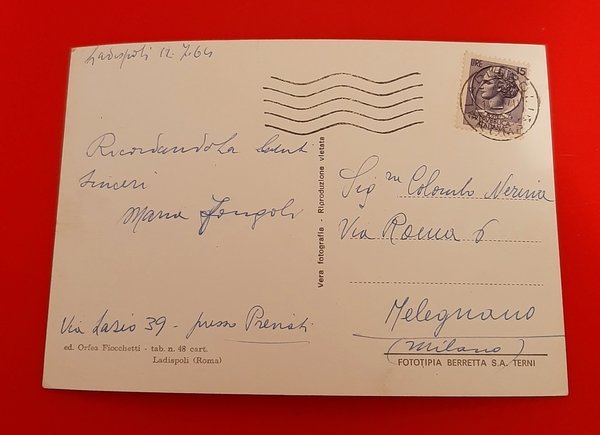 Ladispoli 12.7.64
LIRE 15
Ricordandola
sinceri
Maria
Via Lazio 39 - presso Previati
ed. Orfea Fiocchetti - tab. n. 48 cart.
Ladispoli (Roma)
Vera fotografia - Riproduzione vietata
Sig ra Colombo Nerina
Via Roma 6
Melegnano
(Milano)
FOTOTIPIA BERRETTA S.A. TERNI